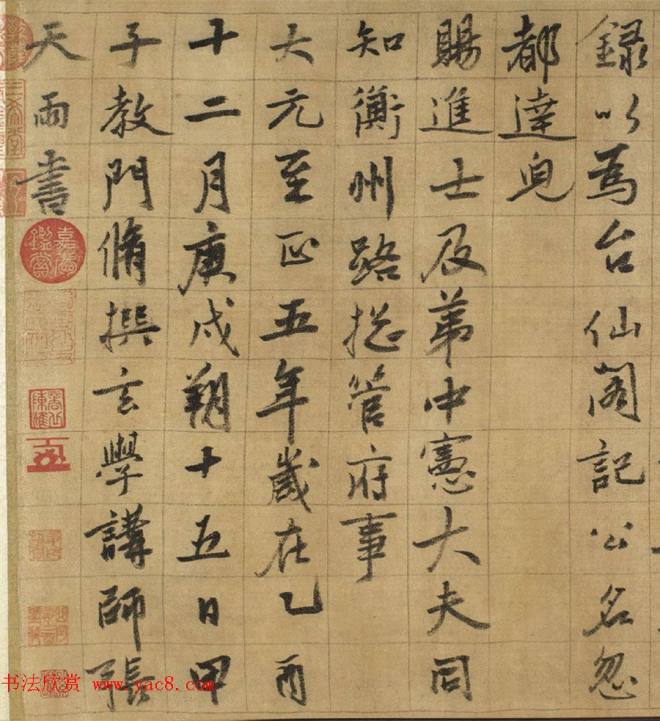 錄以爲台仙閣記公名忽
都達皃
賜進士及第中憲大夫同
知衡州路摠管府事
大元至正五年歲在乙酉
十二月庚戌朔十五日甲
子教門脩撰玄學講師張
天雨書
嘉慶鑑賞
书法欣赏 www.yac8.com